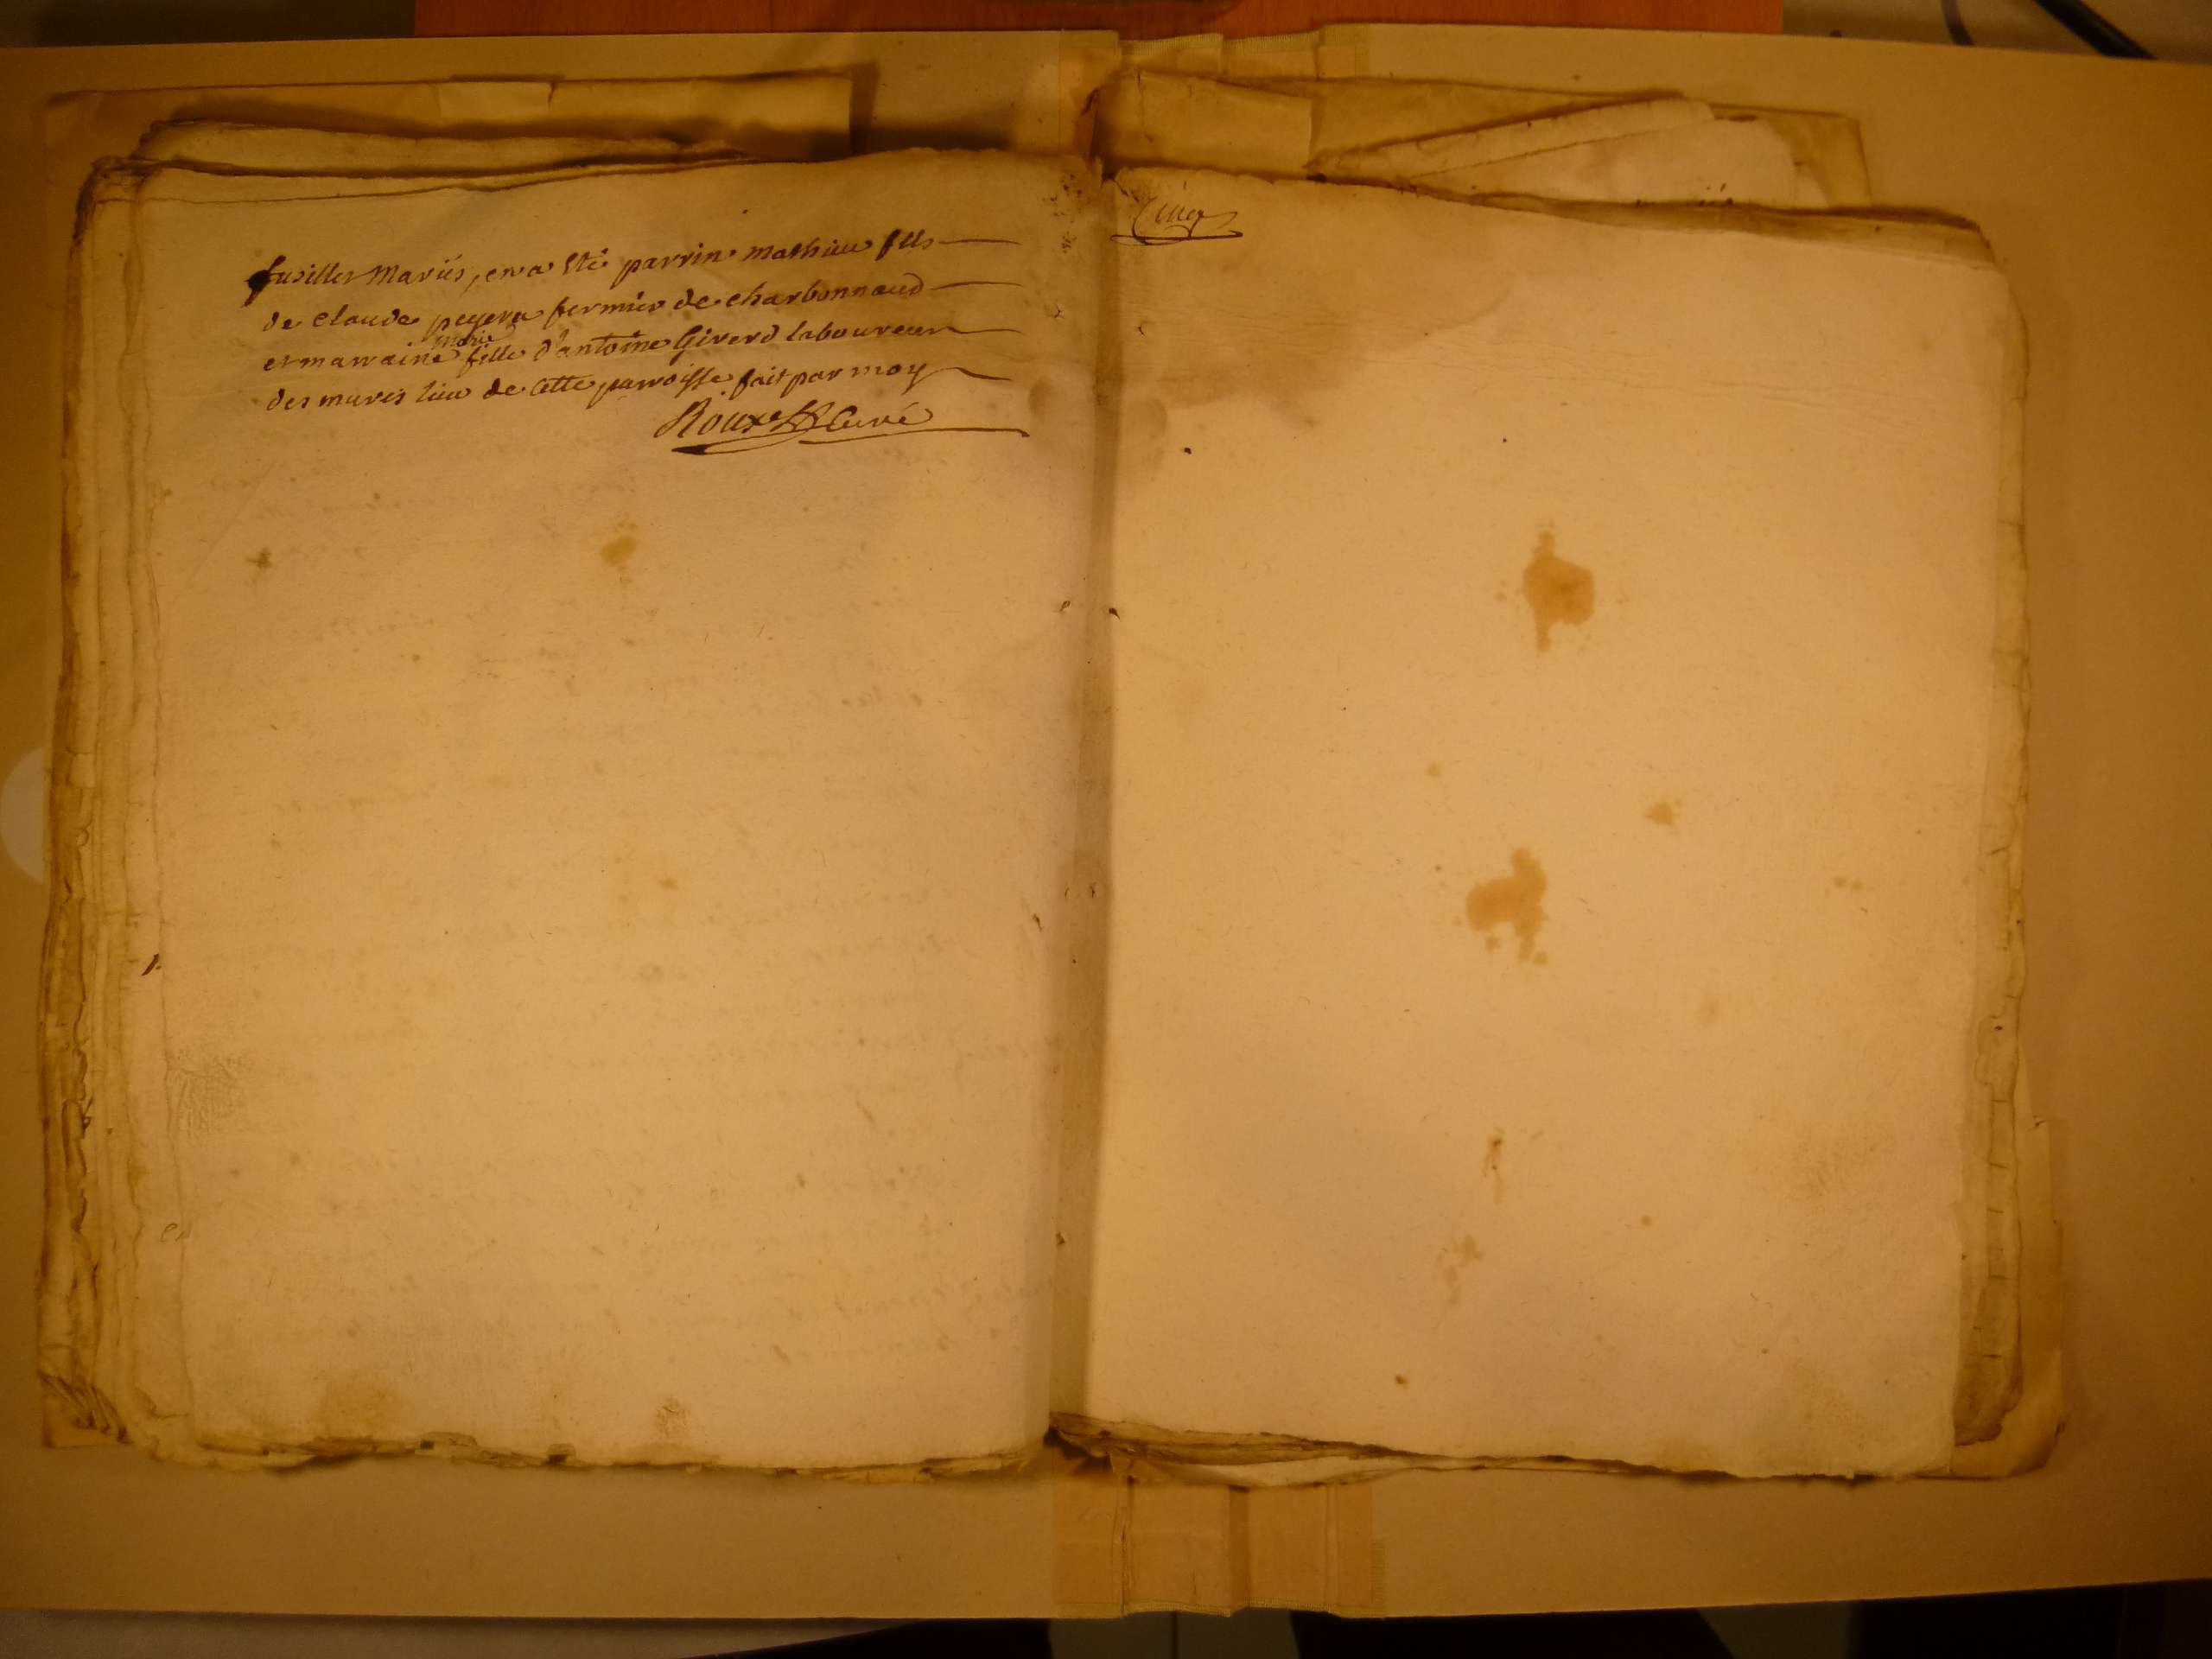 fusilles Mariés, en a eté parrin mathieu fils
de claude peyera fermier de charbonnaud
et marraine marie fille d'antoine Giverd laboureur
des mures lieu de cette parroisse fait par moy
Roux Curé
Cinq